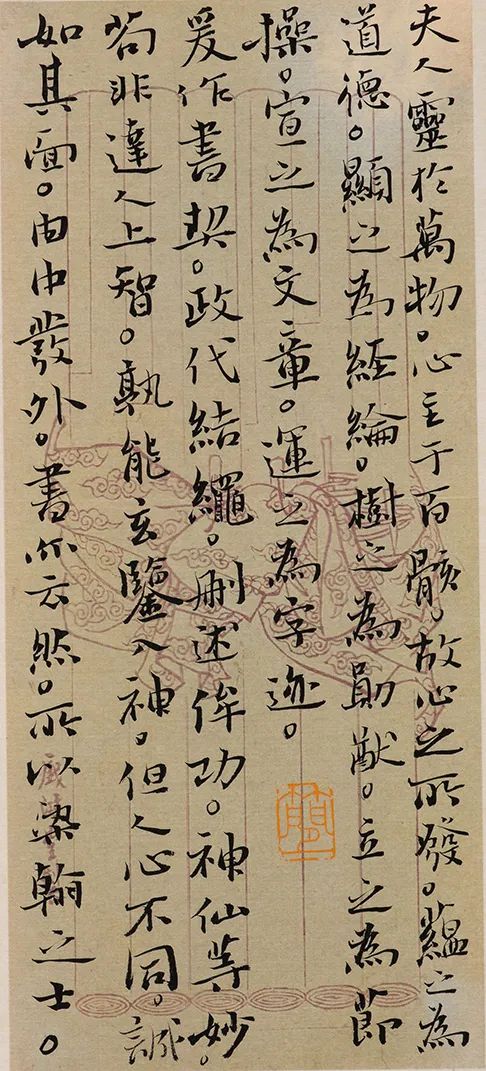 夫人靈於萬物。心主于百骸。故心之所發。蘊之為
道德。顯之為經綸。樹之為勛猷。立之為節
操。宣之為文章。運之為字迹。
爰作書契。政代結繩。刪述侔功。神仙等妙。
苟非達人上智。孰能玄鑒入神。但人心不同。誠
如其面。由中發外。書亦云然。所以染翰之士。